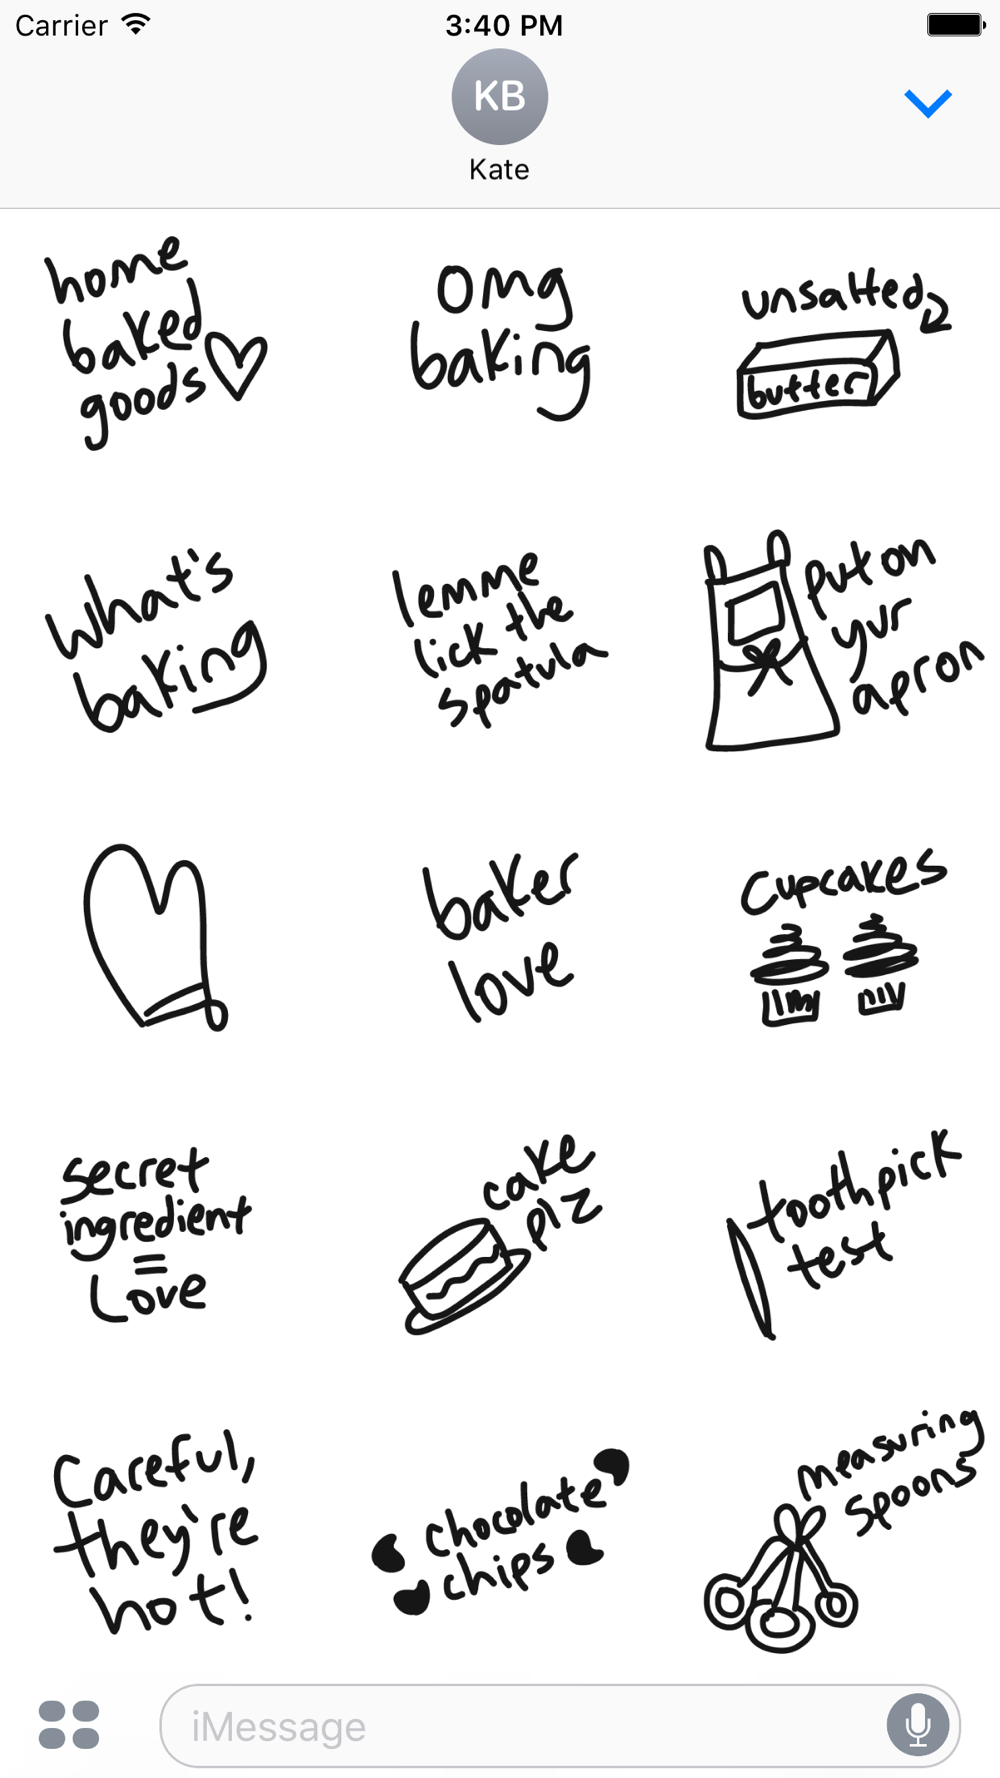 Carrier
3:40 PM
KB
Kate
home
baked
goods
omg
baking
unsalted
butter
what's
baking
lemme
lick the
spatula
put on
yur
apron
baker
love
Cupcakes
secret
ingredient
=
Love
cake
plz
toothpick
test
Careful,
they're
hot!
chocolate
chips
measuring
spoons
iMessage